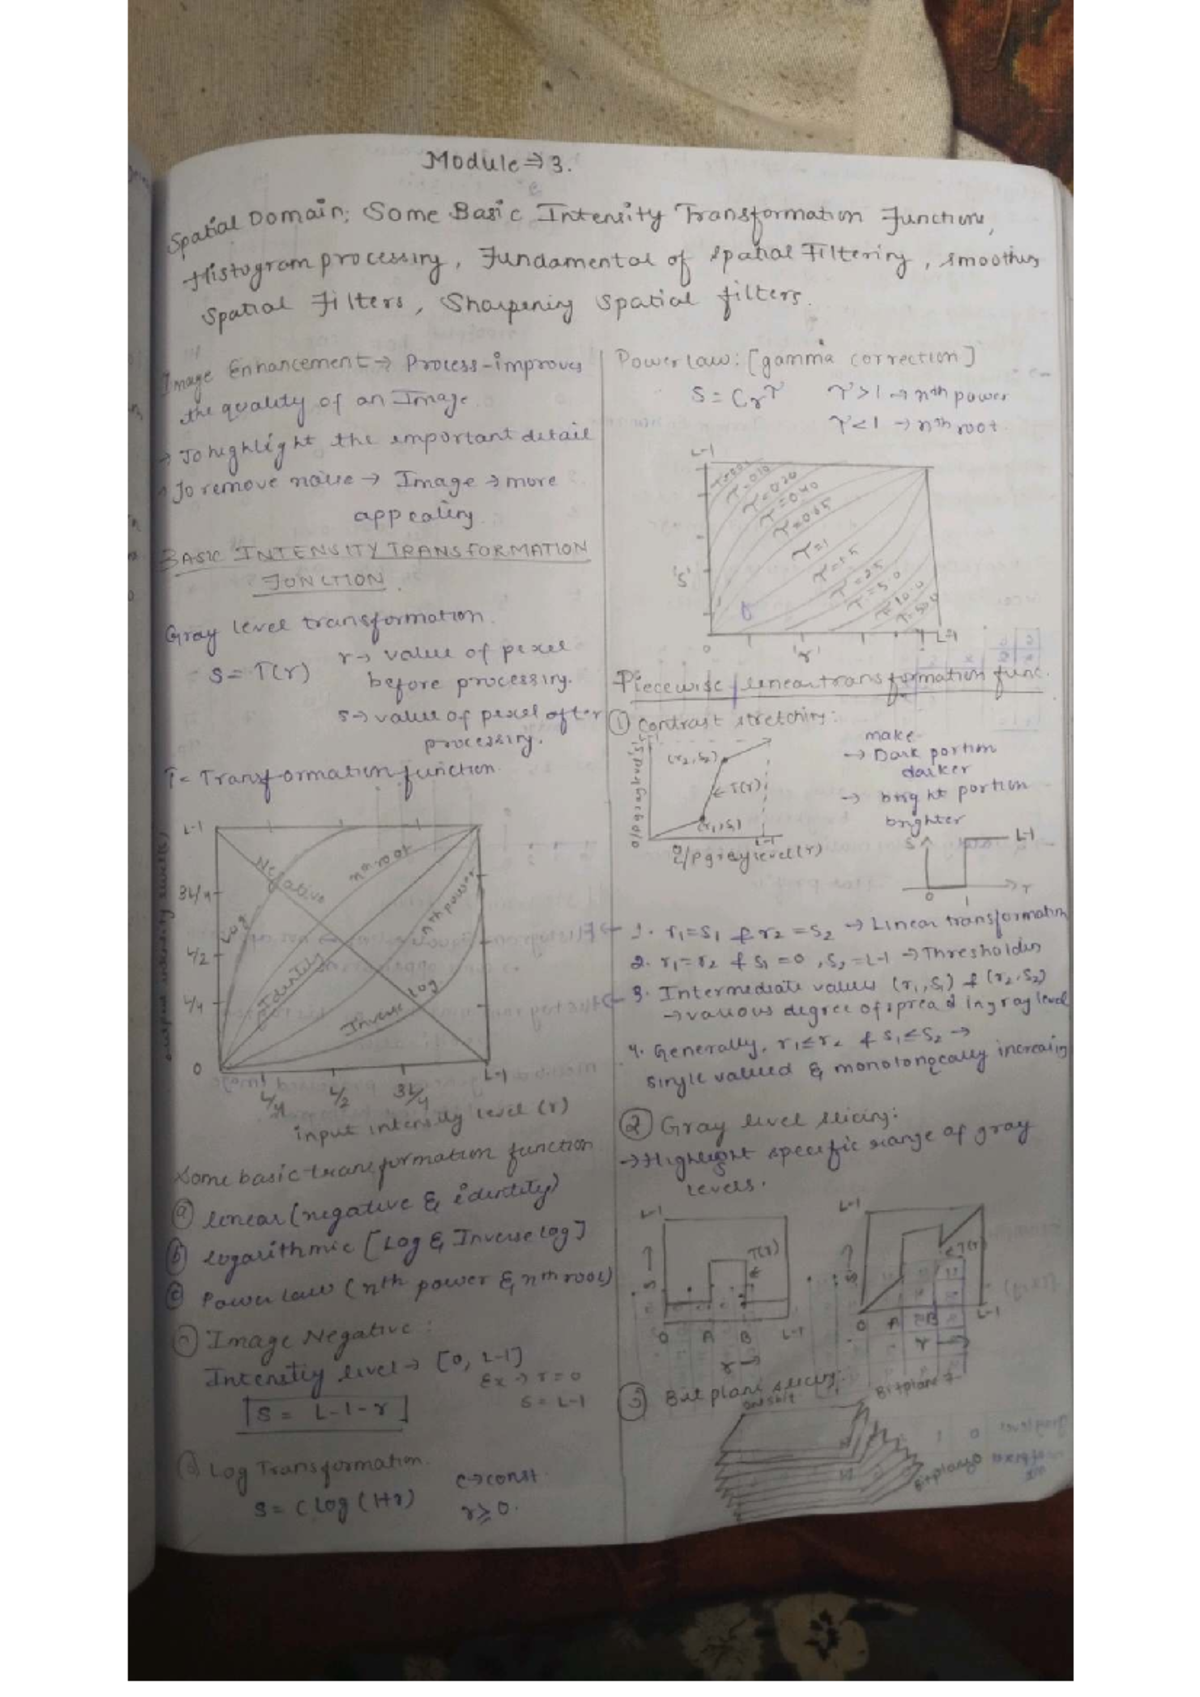 Module⇒3.
Spatial Domain; Some Basic Intensity Transformation Functions,
Histogram processing, Fundamental of spatial Filtering, smoothing
Spatial Filters, Sharpening spatial filters.
Image Enhancement → Process-improves
the quality of an Image.
→ To highlight the important detail
→ To remove noise → Image → more
appealing.
BASIC INTENSITY TRANSFORMATION
FUNCTION
Gray level transformation.
S= T(r)
r→ value of pixel
before processing.
s→ value of pixel after
processing.
T= Transformation function
L-1
3L/4
L/2
L/4
0
Negative
nth root
Log
nth power
Identity
Inverse log
L/4 L/2 3L/4 L-1
input intensity level (r)
Some basic transformation function
(a) linear (negative & identity)
(b) logarithmic [Log & Inverse log]
(c) Power law (nth power & nth root)
Image Negative:
Intensity level → [0, L-1]
Ex → r=0
S= L-1
S = L-1-r
Log Transformation.
S= C log (1+r)
C→const.
r≥0.
Power law: [gamma correction]
S= Crᵞ
γ>1 → nth power
γ<1 → nth root
L-1
γ=0.10
γ=0.20
γ=0.40
γ=1
γ=1.5
γ=2.5
γ=5.0
γ=10.0
's'
0 'r' L-1
Piecewise linear transformation func.
① Contrast stretching:
(r2, S2)
T(r)
(r1, S1)
L-1
I/P gray level (r)
make
→ Dark portion
darker
→ bright portion
brighter
S L-1
0 1 r
1. r1=S1 & r2=S2 → Linear transformation
2. r1=r2 & S1=0, S2=L-1 → Thresholdin
3. Intermediate values (r1, S1) & (r2, S2)
→ various degree of spread in gray level
4. Generally, r1≤r2 & S1≤S2 →
single valued & monotonically increasing
② Gray level slicing:
→ Highlight specific range of gray
levels.
L-1
T(r)
S
0 A B L-1
r→
L-1
T(r)
S
0 A B L-1
r→
③ Bit plane slicing:
Bitplane 7
Bitplane 0